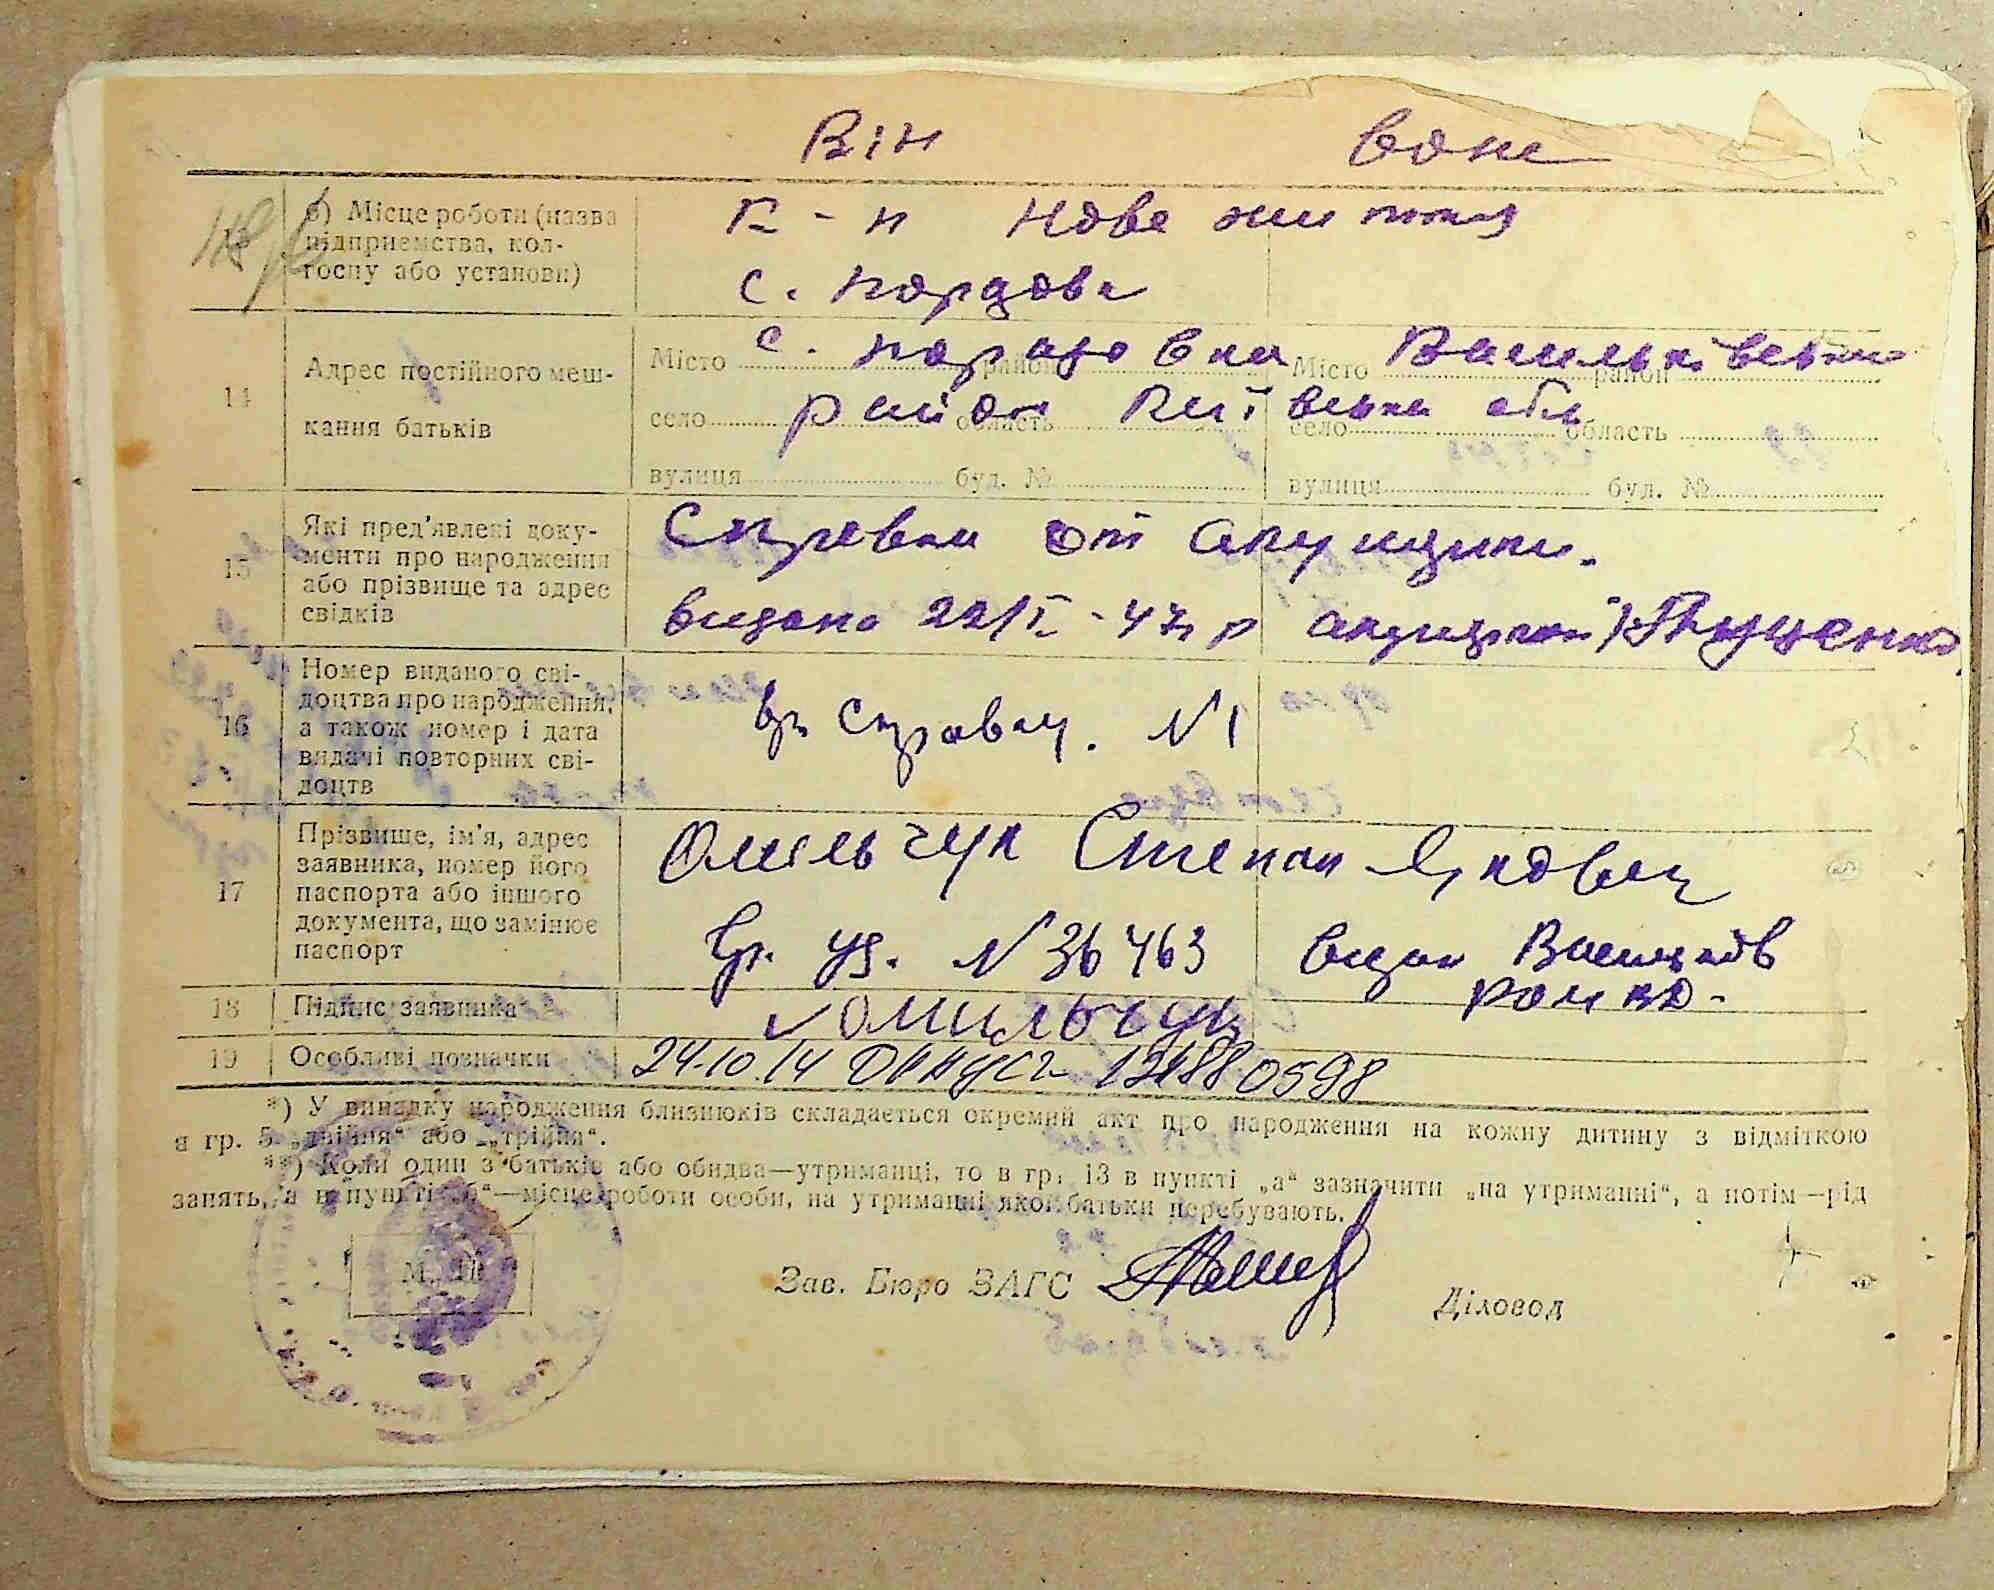 Він Вона
13 б) Місце роботи (назва
підприємства, кол-
госпу або установи)
К-п Нове життя
с. Пордова
14 Адрес постійного меш-
кання батьків
Місто район Місто район
село область село область
вулиця буд. № вулиця буд. №
с. Васильківськи
район Київська обл
15 Які пред'явлені доку-
менти про народження
або прізвище та адрес
свідків
Справка от акушерки.
видана 22/I-47 р акушеркой
16 Номер виданого сві-
доцтва про народження,
а також номер і дата
видачі повторних сві-
доцтв
вр. справку. N 1
17 Прізвище, ім'я, адрес
заявника, номер його
паспорта або іншого
документа, що замінює
паспорт
Омельчук Степан Якович
Вр. уд. N 36463 видан Васильків
РОМВД-
18 Підпис заявника
Омильчук
19 Особливі позначки
24.10.14 ДРАЦС 0598
*) У випадку народження близнюків складається окремий акт про народження на кожну дитину з відміткою
в гр. 5 „двійня“ або „трійня“.
**) Коли один з батьків або обидва—утриманці, то в гр. 13 в пункті „а“ зазначити „на утриманні“, а потім—рід
занять, а в пункті „б“—місце роботи особи, на утриманні якої батьки перебувають.
М. П.
Зав. Бюро ЗАГС Діловод